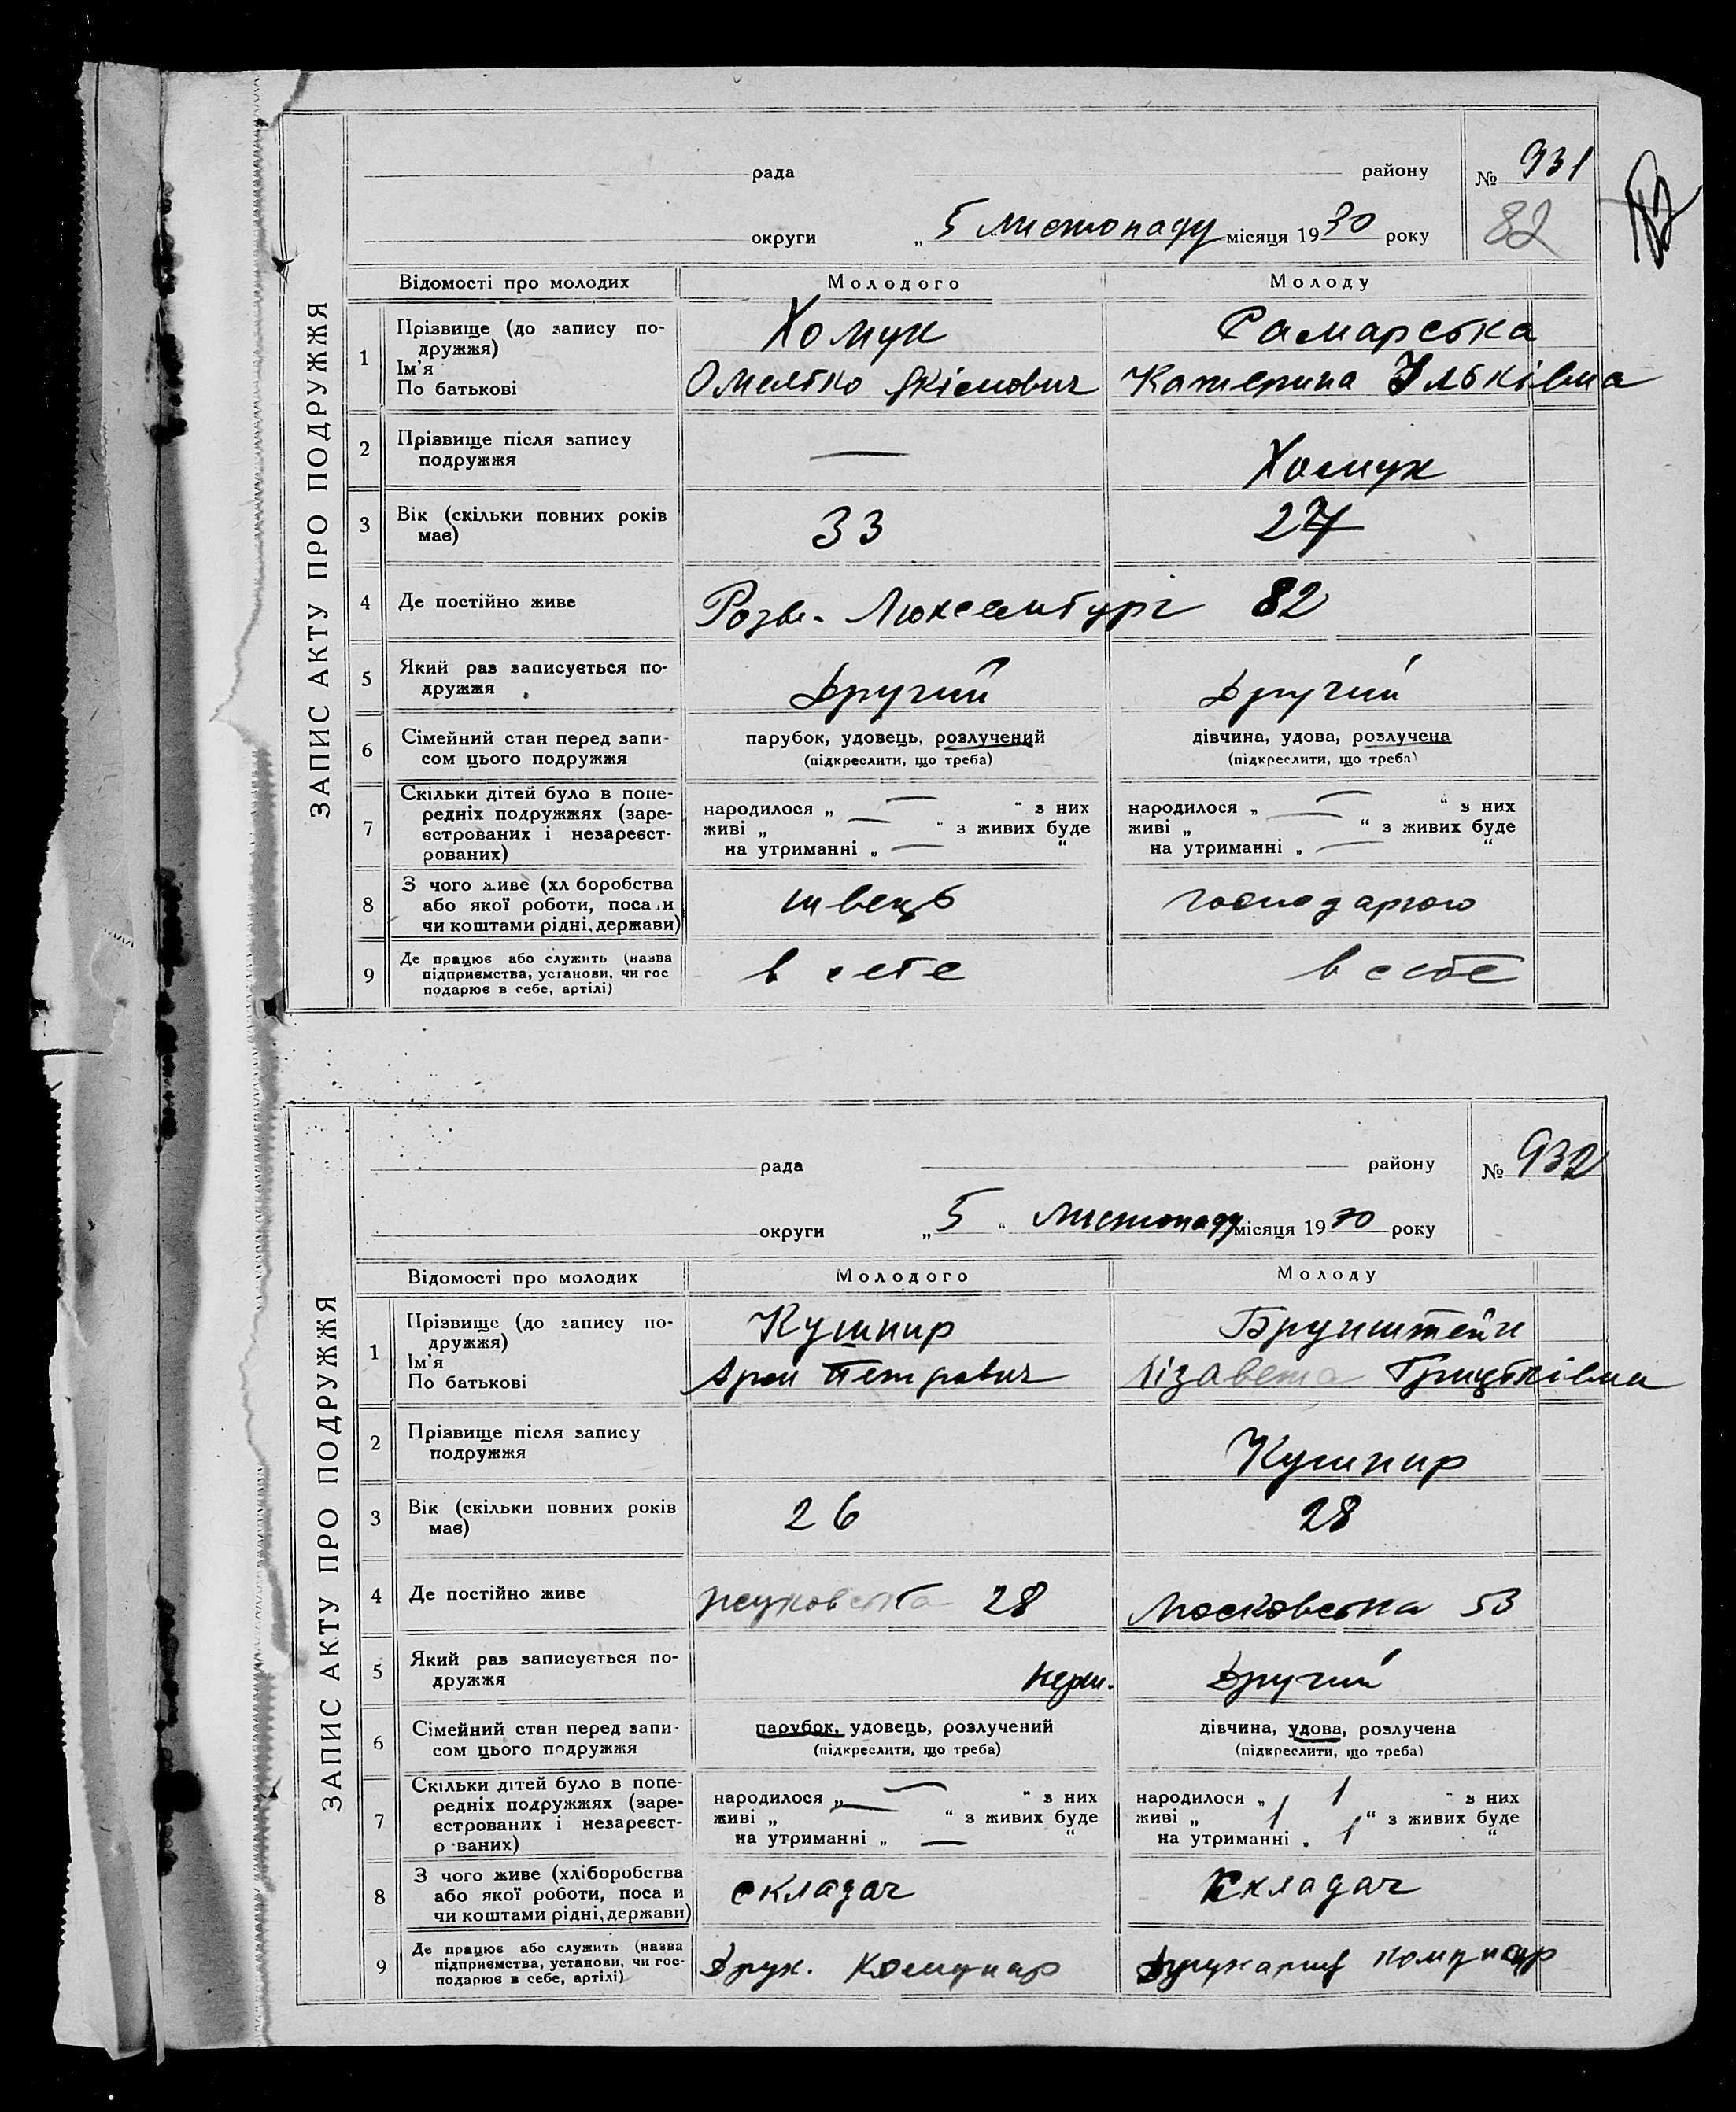 ЗАПИС АКТУ ПРО ПОДРУЖЖЯ
рада району № 931
округи „ 5 листопаду місяця 1930 року 82
Відомості про молодих Молодого Молоду
1 Прізвище (до запису по-
дружжя) Хомук Самарська
Ім'я
По батькові Омелько Якімович Катерина Ільківна
2 Прізвище після запису
подружжя — Хомук
3 Вік (скільки повних років
має) 33 27
4 Де постійно живе Рози- Люксембург 82
5 Який раз записується по-
дружжя Другий Другий
6 Сімейний стан перед запи-
сом цього подружжя парубок, удовець, розлучений дівчина, удова, розлучена
(підкреслити, що треба) (підкреслити, що треба)
7 Скільки дітей було в попе-
редніх подружжях (заре-
єстрованих і незареєст-
рованих)
народилося „ — “ з них народилося „ — “ з них
живі „ — “ з живих буде живі „ — “ з живих буде
на утриманні „ — “ на утриманні „ — “
8 З чого живе (хл боробства
або якої роботи, поса и
чи коштами рідні, держави) швець господарою
9 Де працює або служить (назва
підприємства, установи, чи гос
подарює в себе, артілі) в себе в себе
ЗАПИС АКТУ ПРО ПОДРУЖЖЯ
рада району № 932
округи „ 5 “ листопаду місяця 1930 року
Відомості про молодих Молодого Молоду
1 Прізвище (до запису по-
дружжя) Кушнир Брунштейн
Ім'я
По батькові Арон Петрович Лізавета Грицьківна
2 Прізвище після запису
подружжя Кушнир
3 Вік (скільки повних років
має) 26 28
4 Де постійно живе Жуковська 28 Московська 53
5 Який раз записується по-
дружжя перш. Другий
6 Сімейний стан перед запи-
сом цього подружжя парубок, удовець, розлучений дівчина, удова, розлучена
(підкреслити, що треба) (підкреслити, що треба)
7 Скільки дітей було в попе-
редніх подружжях (заре-
єстрованих і незареєст-
р ваних)
народилося „ — “ з них народилося „ 1 “ з них
живі „ — “ з живих буде живі „ 1 “ з живих буде
на утриманні „ — “ на утриманні „ 1 “
8 З чого живе (хліборобства
або якої роботи, поса и
чи коштами рідні, держави) складач складач
9 Де працює або служить (назва
підприємства, установи, чи гос-
подарює в себе, артілі) Друк. Комунар Друкарня Комунар